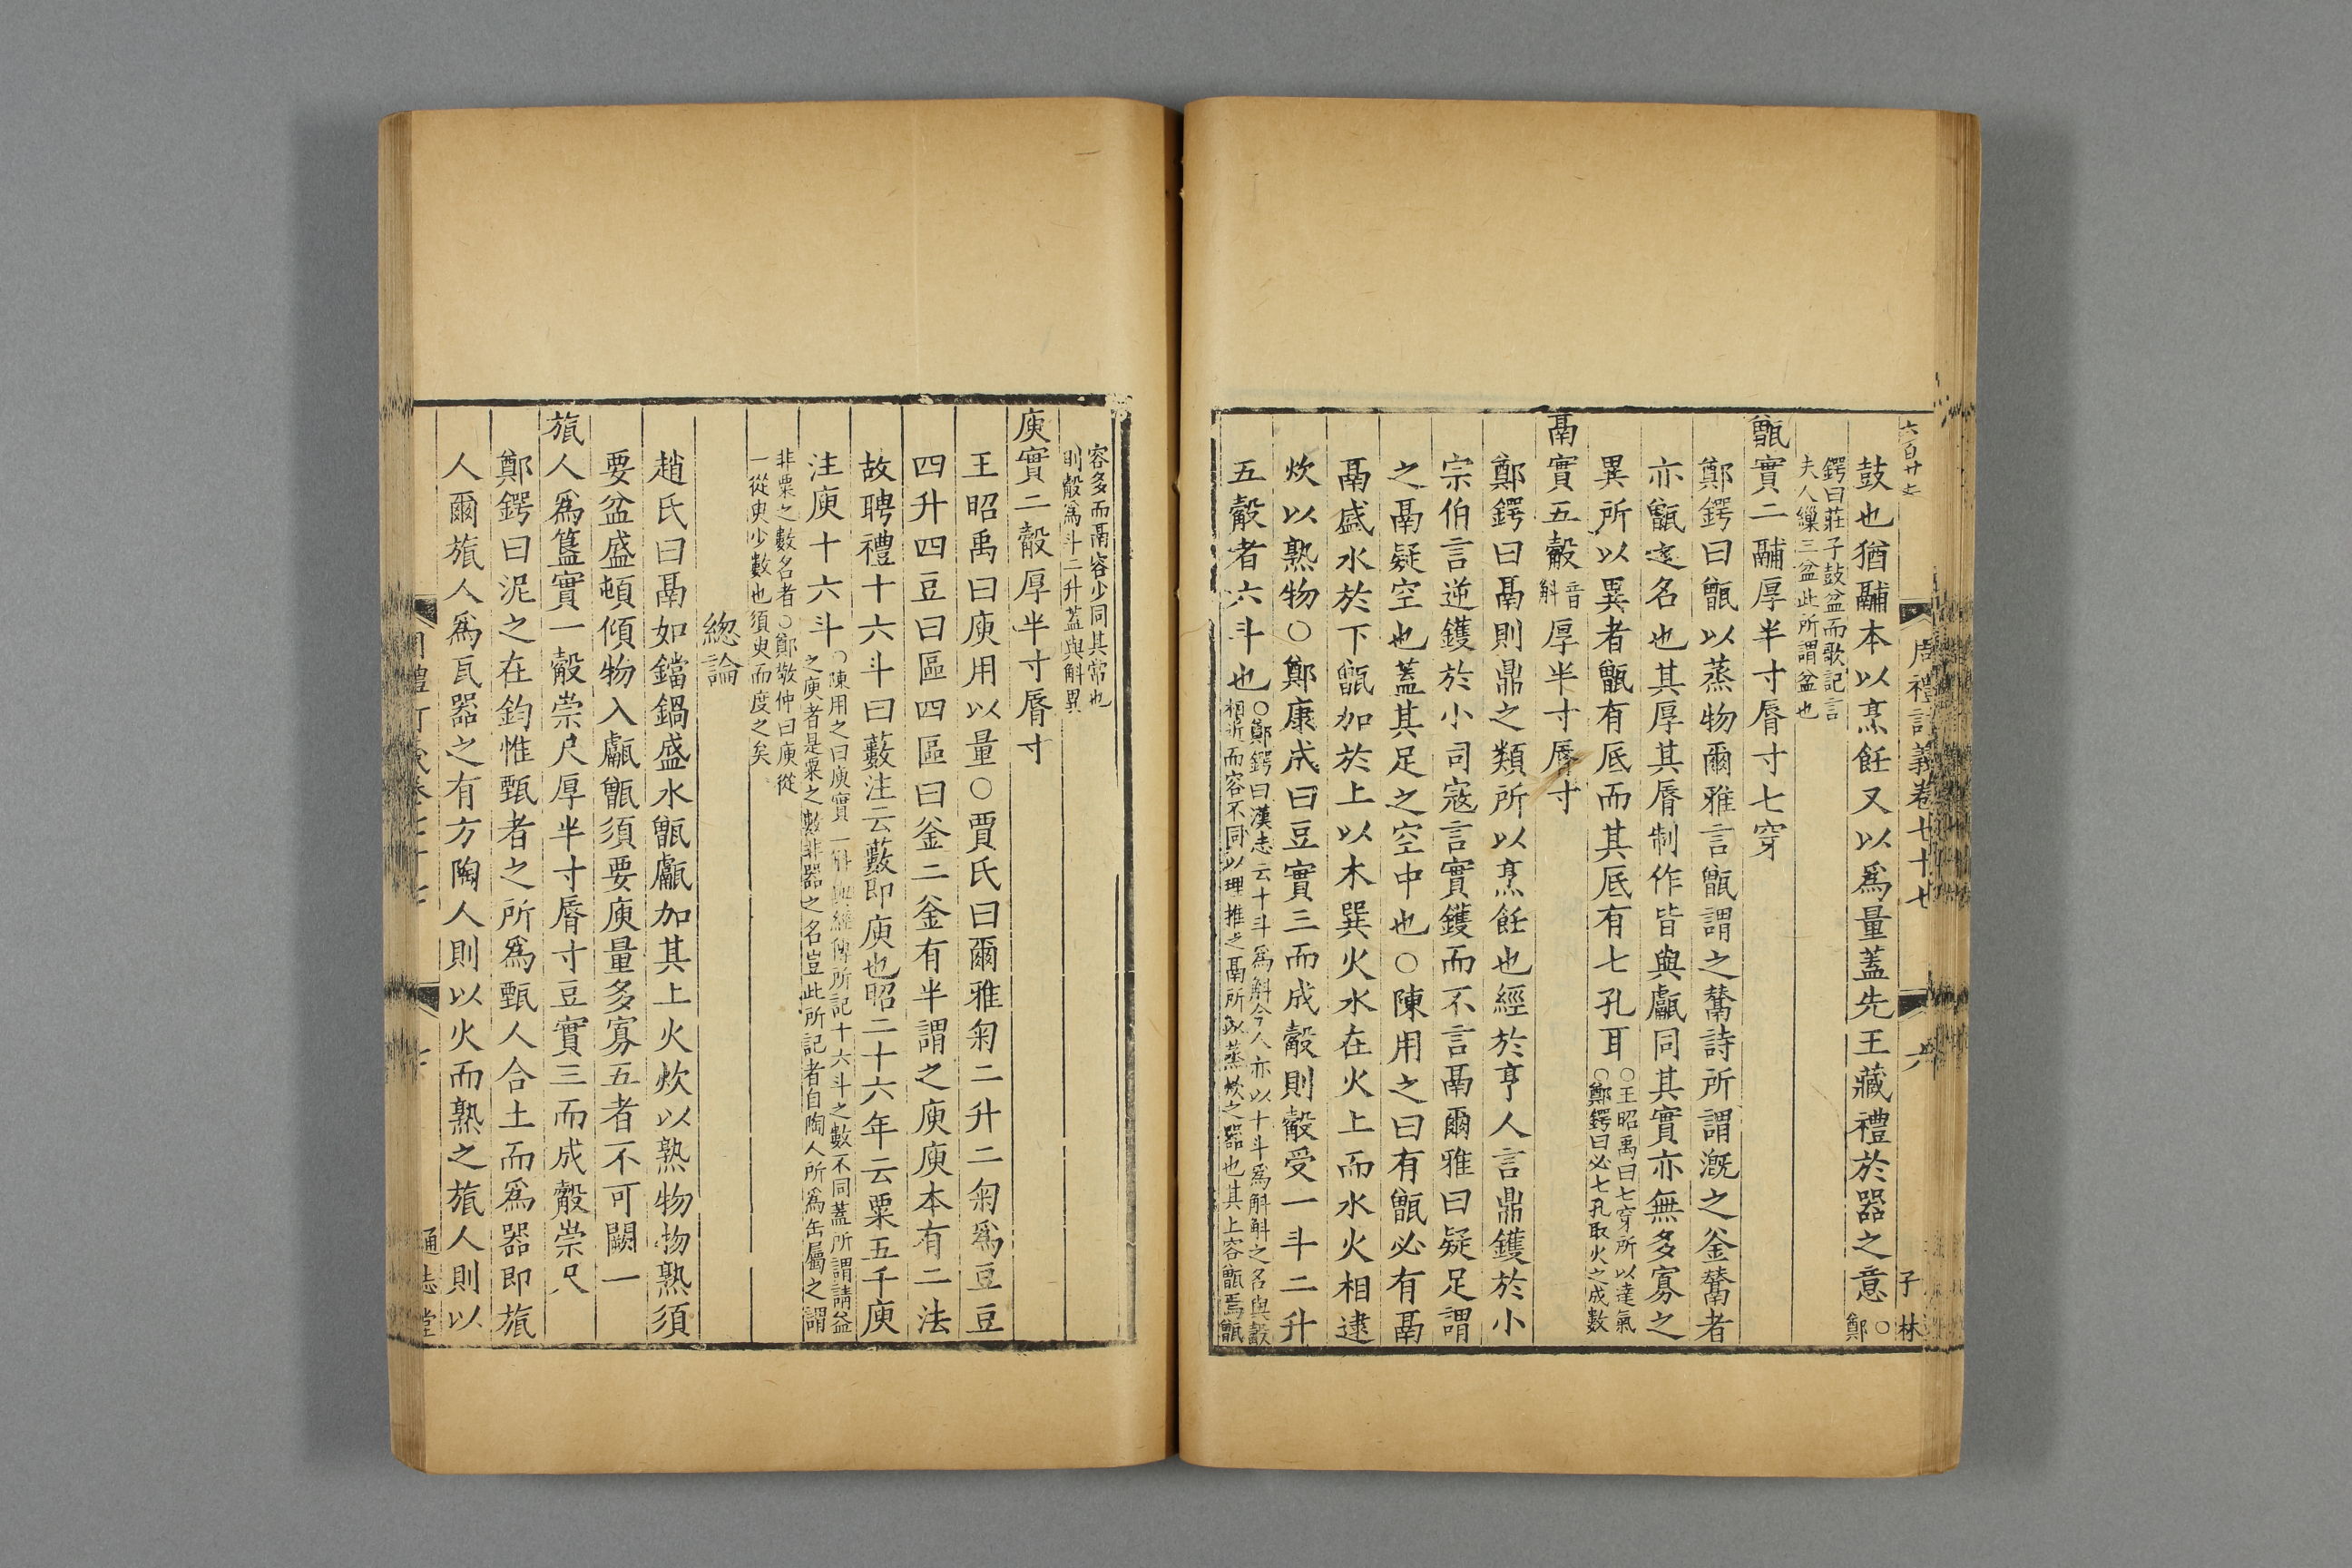 六百廿七
周禮訂義卷七十七
六
子林
鼓也猶鬴本以烹飪又以爲量蓋先王藏禮於器之意○鄭
鍔曰莊子鼓盆而歌記言
夫人繅三盆此所謂盆也
甑實二鬴厚半寸脣寸七穿
鄭鍔曰甑以蒸物爾雅言甑謂之鬵詩所謂漑之釜鬵者
亦甑之名也其厚其脣制作皆與甗同其實亦無多寡之
異所以異者甑有底而其底有七孔耳○王昭禹曰七穿所以達氣○鄭鍔曰必七孔取火之成數
鬲實五觳音斛厚半寸脣寸
鄭鍔曰鬲則鼎之類所以烹飪也經於亨人言鼎鑊於小
宗伯言逆鑊於小司寇言實鑊而不言鬲爾雅曰疑足謂
之鬲疑空也蓋其足之空中也○陳用之曰有甑必有鬲
鬲盛水於下甑加於上以木巽火水在火上而水火相逮
炊以熟物○鄭康成曰豆實三而成觳則觳受一斗二升
五觳者六斗也○鄭鍔曰漢志云十斗爲斛今人亦以十斗爲斛斛之名與觳
相近而容不同以理推之鬲所以蒸炊之器也其上容甑焉甑
容多而鬲容少同其常也
則觳爲斗二升蓋與斛異
庾實二觳厚半寸脣寸
王昭禹曰庾用以量○賈氏曰爾雅匊二升二匊爲豆豆
四升四豆曰區四區曰釜二釜有半謂之庾庾本有二法
故聘禮十六斗曰藪注云藪即庾也昭二十六年云粟五千庾
注庾十六斗○陳用之曰庾實二斛與經傳所記十六斗之數不同蓋所謂請益
之庾者是粟之數非器之名豈此所記者自陶人所爲缶屬之謂
非粟之數名者○鄭敬仲曰庾從
一從臾少數也須臾而度之矣
緫論
趙氏曰鬲如鐺鍋盛水甑甗加其上火炊以熟物物熟須
要盆盛頓傾物入甗甑須要庾量多寡五者不可闕一
旊人爲簋實一觳崇尺厚半寸脣寸豆實三而成觳崇尺
鄭鍔曰泥之在鈞惟甄者之所爲甄人合土而爲器即旊
人爾旊人爲瓦器之有方陶人則以火而熟之旊人則以
通志堂